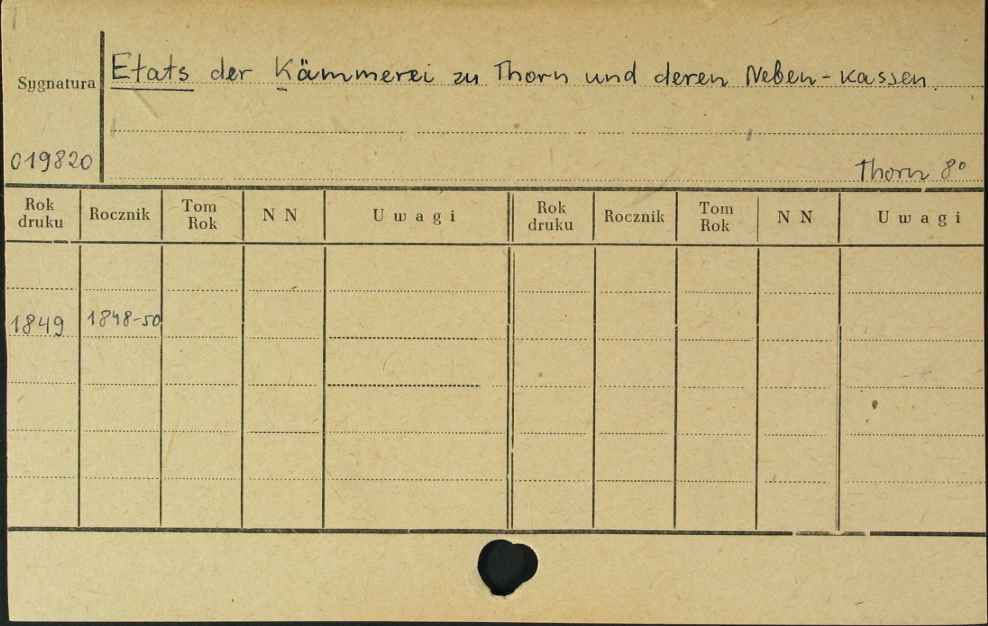 Sygnatura
Etats der Kämmerei zu Thorn und deren Neben-kassen
019820
Thorn 8°
Rok druku Rocznik Tom Rok N N Uwagi Rok druku Rocznik Tom Rok N N Uwagi
1849 1848-50